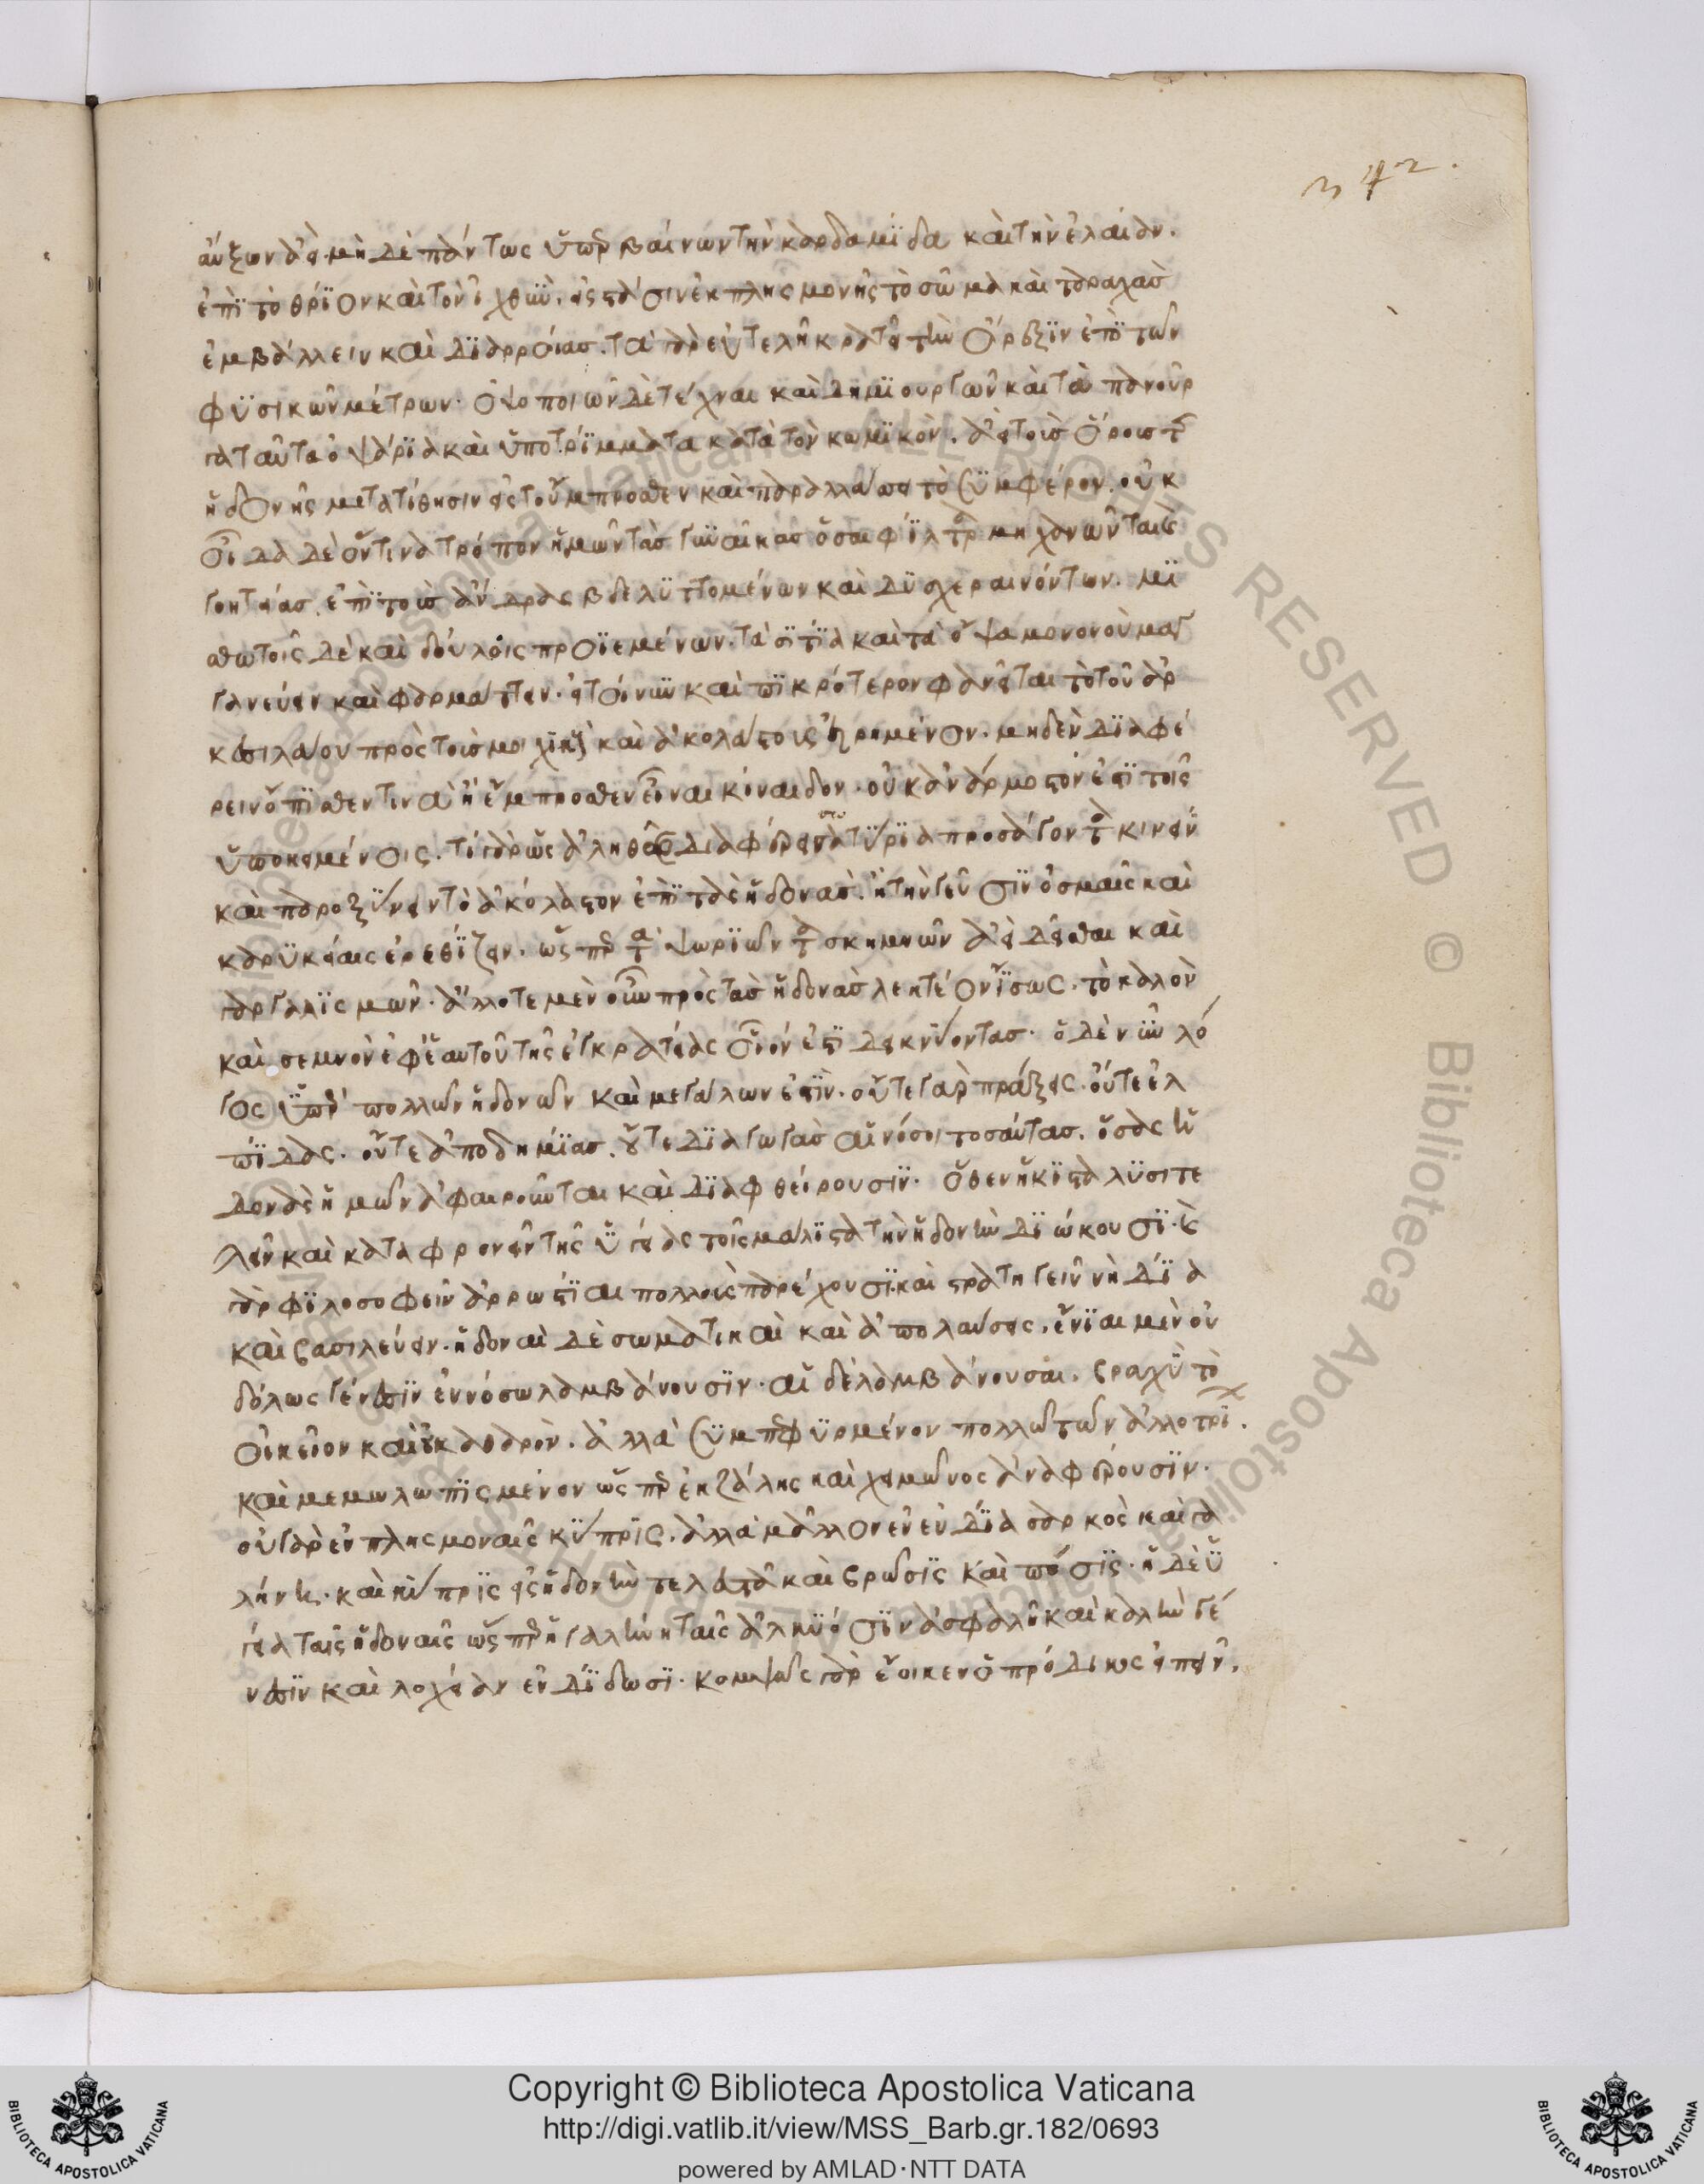 342.
αύξων ἀεὶ. μὴ δὲ πάντως ὑπερβαίνων τὴν καρδαμίδα καὶ τὴν ἐλαίαν.
ἐπὶ τὸ θρῖον καὶ τὸν ἰχθὺν. εἰς στάσιν ἐκ πλησμονῆς τὸ σῶμα καὶ ταραχὰς
ἐμβάλλειν καὶ διαρροίας. τὰ γὰρ εὐτελῆ κρατεῖ τὴν ὄρεξιν ἐπὶ τῶν
φυσικῶν μέτρων. ὀψοποιῶν δὲ τέχναι καὶ δημιουργῶν καὶ τὰ πανοῦρ
γα ταῦτα ὀψάρια καὶ ὑποτρίμματα κατὰ τὸν κωμικὸν. ἀεὶ τοὺς ὅρους τῆς
ἡδονῆς μετατίθησιν εἰς τοὔμπροσθεν καὶ παραλλάττει τὸ συμφέρον. οὐκ
οἶδα δὲ ὅντινα τρόπον ἡμῶν τὰς γυναῖκας ὅσαι φίλτρα μηχανῶνται καὶ
γοητείας. ἐπὶ τοὺς ἄνδρας βδελυττομένων καὶ δυσχεραινόντων. μι
σθωτοῖς δὲ καὶ δούλοις προϊεμένων. τὰ σιτία καὶ τὰ ὄψα μονονοὺ μαγ
γανεύειν καὶ φαρμάττειν. εἰ τοίνυν καὶ πικρότερον φανεῖται τὸ τοῦ ἀρ
κεσιλάου πρὸς τοὺς μοιχικοὺς καὶ ἀκολάστους εἰρημένον. μηδὲν διαφέ
ρειν ὄπισθεν τινὰ ἢ ἔμπροσθεν εἶναι κίναιδον. οὐκ ἀνάρμοστόν ἐστι τοῖς
ὑποκειμένοις. τί γὰρ ὡς ἀληθῶς διαφέρει σατύρια προσάγοντα κινεῖν
καὶ παροξύνειν τὸ ἀκόλαστον ἐπὶ τὰς ἡδονὰς. ἢ τὴν γεῦσιν ὀσμαῖς καὶ
καρυκείαις ἐρεθίζειν. ὥσπερ τὰ ψωριῶντα κνησμῶν ἀεὶ δεῖσθαι καὶ
γαργαλισμῶν. ἄλλοτε μὲν οὖν πρὸς τὰς ἡδονὰς λεκτέον ἴσως. τὸ καλὸν
καὶ σεμνὸν ἐφ' ἑαυτοῦ τῆς ἐγκρατείας οἷόν ἐστι δεικνύοντας. ὁ δὲ νῦν λό
γος ὑπὲρ πολλῶν ἡδονῶν καὶ μεγάλων ἐστὶν. οὔτε γὰρ πράξεις. οὔτε ἐλ
πίδας. οὔτε ἀποδημίας. οὔτε διαγωγὰς αἱ νόσοι τοσαύτας. ὅσας ἡ
δονὰς ἡμῶν ἀφαιροῦνται καὶ διαφθείρουσιν. ὅθεν ἥκιστα λυσιτε
λεῖν καὶ καταφρονεῖν τῆς ὑγείας τοῖς μάλιστα τὴν ἡδονὴν διώκουσι. καὶ
γὰρ φιλοσοφεῖν ἀρρωστίαι πολλοῖς παρέχουσι. καὶ στρατηγεῖν νὴ δία
καὶ βασιλεύειν. ἡδοναὶ δὲ σωματικαὶ καὶ ἀπολαύσεις. ἔνιαι μὲν οὐ
δόλως γένεσιν ἐν νόσω λαμβάνουσιν. αἱ δὲ λαμβάνουσαι. βραχὺ τὸ
οἰκεῖον καὶ οὐ καθαρὸν. ἀλλὰ συμπεφυρμένον πολλῶ τῶν ἀλλοτρί.
καὶ μεμωλωπισμένον ὥσπερ ἐκ ζάλης καὶ χειμῶνος ἀναφέρουσιν.
οὐ γὰρ ἐν πλησμοναῖς κύπρις. ἀλλὰ μᾶλλον ἐν εὐδία σαρκὸς καὶ γα
λήνη. καὶ κύπρις εἰς ἡδονὴν τελευτᾶ καὶ βρῶσις καὶ πόσις. ἡ δὲ ὑ
γεία ταῖς ἡδοναῖς ὥσπερ ἡ γαλήνη ταῖς ἀλκυόσιν ἀσφαλῆ καὶ καλὴν γέ
νεσιν καὶ λοχείαν ἐνδίδωσι. κομψῶς γὰρ ἔοικεν ὁ πρόδικος εἰπεῖν.
Copyright © Biblioteca Apostolica Vaticana
http://digi.vatlib.it/view/MSS_Barb.gr.182/0693
powered by AMLAD·NTT DATA